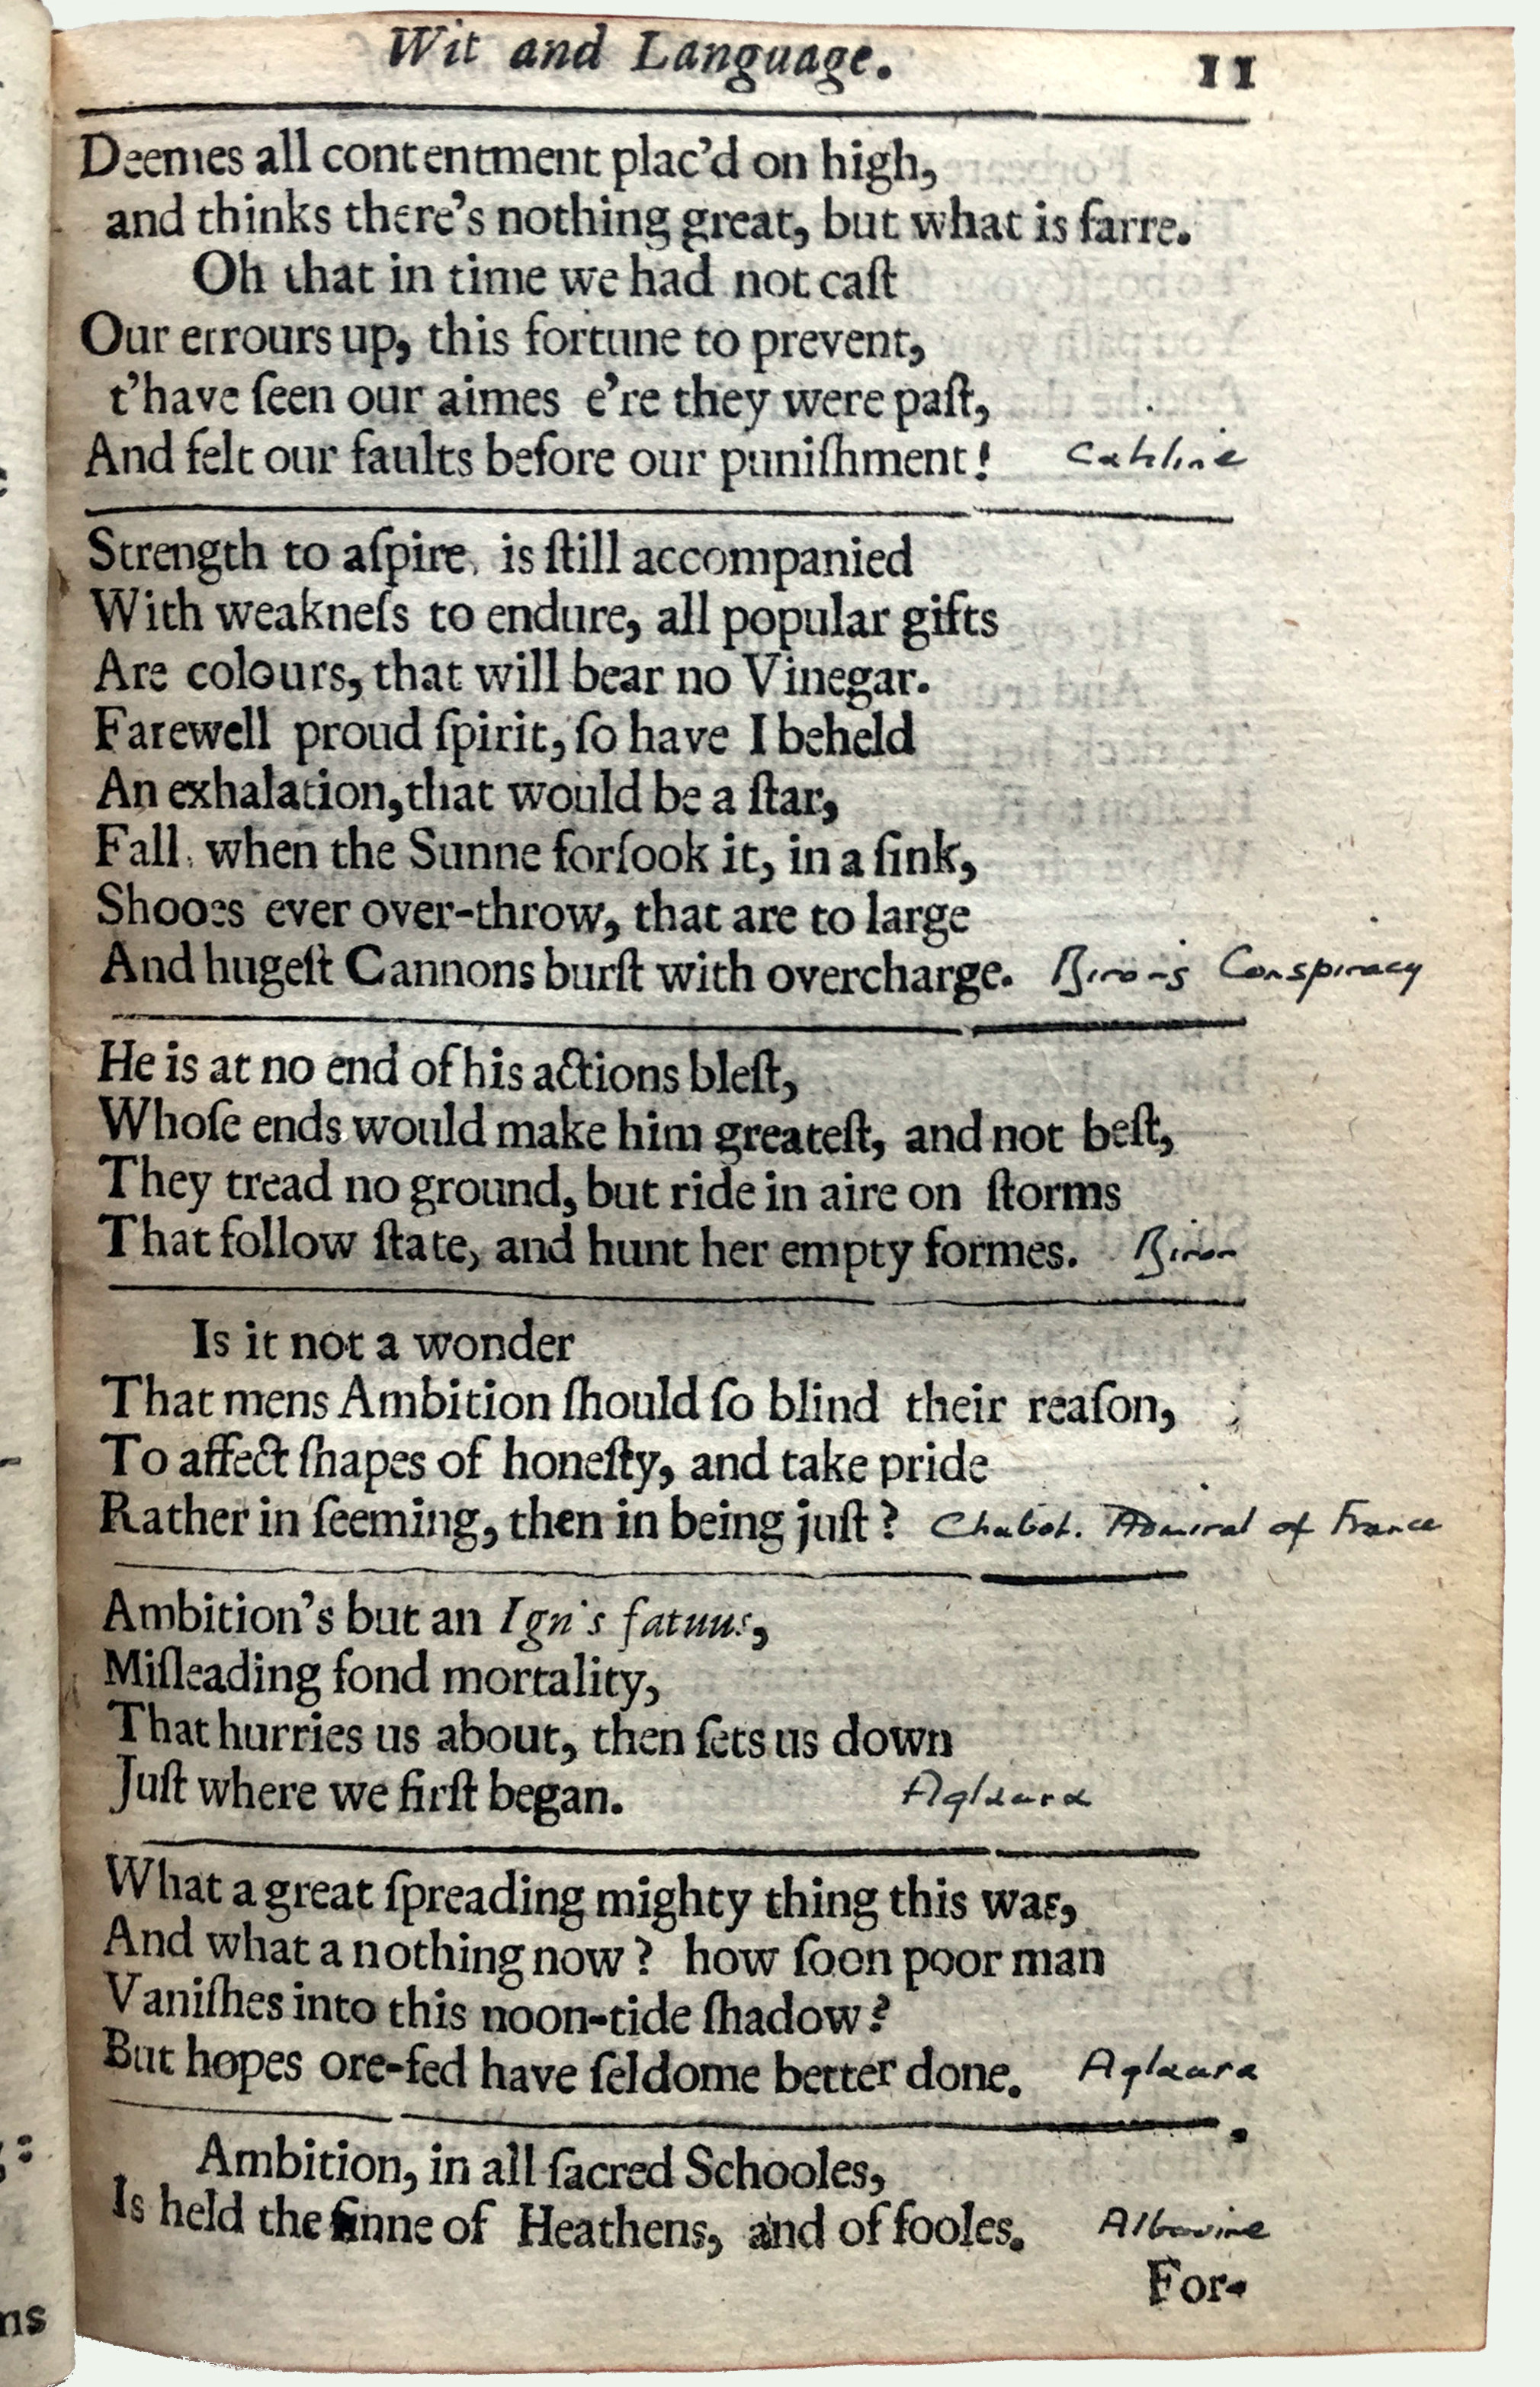 Wit and Language. 11
Deemes all contentment plac'd on high,
and thinks there's nothing great, but what is farre.
Oh that in time we had not caſt
Our errours up, this fortune to prevent,
t'have ſeen our aimes e're they were paſt,
And felt our faults before our puniſhment! Catiline
Strength to aſpire, is ſtill accompanied
With weakneſs to endure, all popular gifts
Are colours, that will bear no Vinegar.
Farewell proud ſpirit, ſo have I beheld
An exhalation, that would be a ſtar,
Fall, when the Sunne forſook it, in a ſink,
Shooes ever over-throw, that are to large
And hugeſt Cannons burſt with overcharge. Biron's Conspiracy
He is at no end of his actions bleſt,
Whoſe ends would make him greateſt, and not beſt,
They tread no ground, but ride in aire on ſtorms
That follow ſtate, and hunt her empty formes. Biron
Is it not a wonder
That mens Ambition ſhould ſo blind their reaſon,
To affect ſhapes of honeſty, and take pride
Rather in ſeeming, then in being juſt? Chabot. Admiral of France
Ambition's but an Ignis fatuus,
Miſleading fond mortality,
That hurries us about, then ſets us down
Juſt where we firſt began. Aglaura
What a great ſpreading mighty thing this was,
And what a nothing now? how ſoon poor man
Vaniſhes into this noon-tide ſhadow?
But hopes ore-fed have ſeldome better done. Aglaura
Ambition, in all ſacred Schooles,
Is held the ſinne of Heathens, and of fooles. Albovine
For-